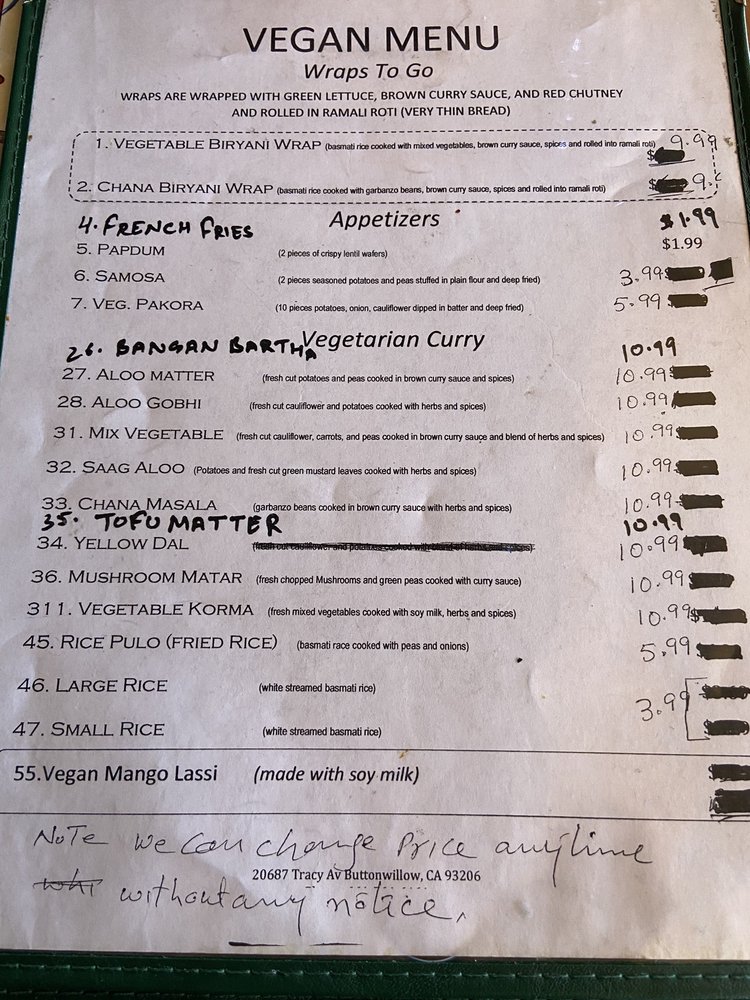 VEGAN MENU
Wraps To Go
WRAPS ARE WRAPPED WITH GREEN LETTUCE, BROWN CURRY SAUCE, AND RED CHUTNEY
AND ROLLED IN RAMALI ROTI (VERY THIN BREAD)
1. VEGETABLE BIRYANI WRAP (basmati rice cooked with mixed vegetables, brown curry sauce, spices and rolled into ramali roti) $ 9.99
2. CHANA BIRYANI WRAP (basmati rice cooked with garbanzo beans, brown curry sauce, spices and rolled into ramali roti) $
Appetizers
4. FRENCH FRIES $1.99
5. PAPDUM (2 pieces of crispy lentil wafers) $1.99
6. SAMOSA (2 pieces seasoned potatoes and peas stuffed in plain flour and deep fried) 3.99$
7. VEG. PAKORA (10 pieces potatoes, onion, cauliflower dipped in batter and deep fried) 5.99
Vegetarian Curry
26. BANGAN BARTHA 10.99
27. ALOO MATTER (fresh cut potatoes and peas cooked in brown curry sauce and spices) 10.99$
28. ALOO GOBHI (fresh cut cauliflower and potatoes cooked with herbs and spices) 10.99
31. MIX VEGETABLE (fresh cut cauliflower, carrots, and peas cooked in brown curry sauce and blend of herbs and spices) 10.99$
32. SAAG ALOO (Potatoes and fresh cut green mustard leaves cooked with herbs and spices) 10.99
33. CHANA MASALA (garbanzo beans cooked in brown curry sauce with herbs and spices) 10.99
35. TOFU MATTER 10.99
34. YELLOW DAL (fresh cut cauliflower and potatoes cooked with blend of herbs and spices) 10.99
36. MUSHROOM MATAR (fresh chopped Mushrooms and green peas cooked with curry sauce) 10.99
311. VEGETABLE KORMA (fresh mixed vegetables cooked with soy milk, herbs and spices) 10.99$
45. RICE PULO (FRIED RICE) (basmati race cooked with peas and onions) 5.99
46. LARGE RICE (white streamed basmati rice)
3.99
47. SMALL RICE (white streamed basmati rice)
55.Vegan Mango Lassi (made with soy milk)
NOTE we can change Price anytime
20687 Tracy Av Buttonwillow, CA 93206
without any notice.